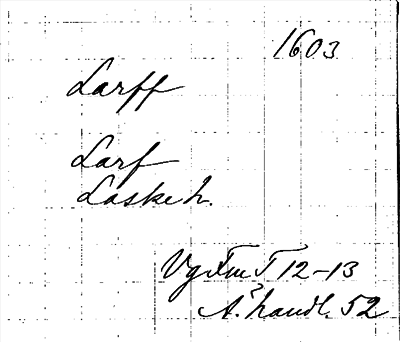 1603
Larff
Larf
Laske h.
Vg Fm T 12-13
Ä. handl. 52